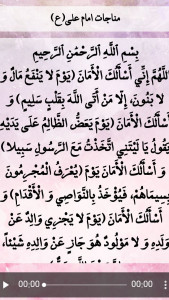 مناجات امام علی(ع)
بِسْمِ اَللَّهِ اَلرَّحْمٰنِ اَلرَّحِيمِ
اَللَّهُمَّ إِنِّي أَسْأَلُكَ الْأَمَانَ (يَوْمَ لاَ يَنْفَعُ مَالٌ وَ
لاَ بَنُونَ، إِلاَّ مَنْ أَتَى اللَّهَ بِقَلْبٍ سَلِيمٍ) وَ
أَسْأَلُكَ الْأَمَانَ (يَوْمَ يَعَضُّ الظَّالِمُ عَلَى يَدَيْهِ
يَقُولُ يَا لَيْتَنِي اتَّخَذْتُ مَعَ الرَّسُولِ سَبِيلا)
وَ أَسْأَلُكَ الْأَمَانَ (يَوْمَ) (يُعْرَفُ الْمُجْرِمُونَ
بِسِيمَاهُمْ، فَيُؤْخَذُ بِالنَّوَاصِي وَ الْأَقْدَامِ) وَ
أَسْأَلُكَ الْأَمَانَ (يَوْمَ لاَ يَجْزِي وَالِدٌ عَنْ
وَلَدِهِ وَ لاَ مَوْلُودٌ هُوَ جَازٍ عَنْ وَالِدِهِ شَيْئاً،
00:00 00:00